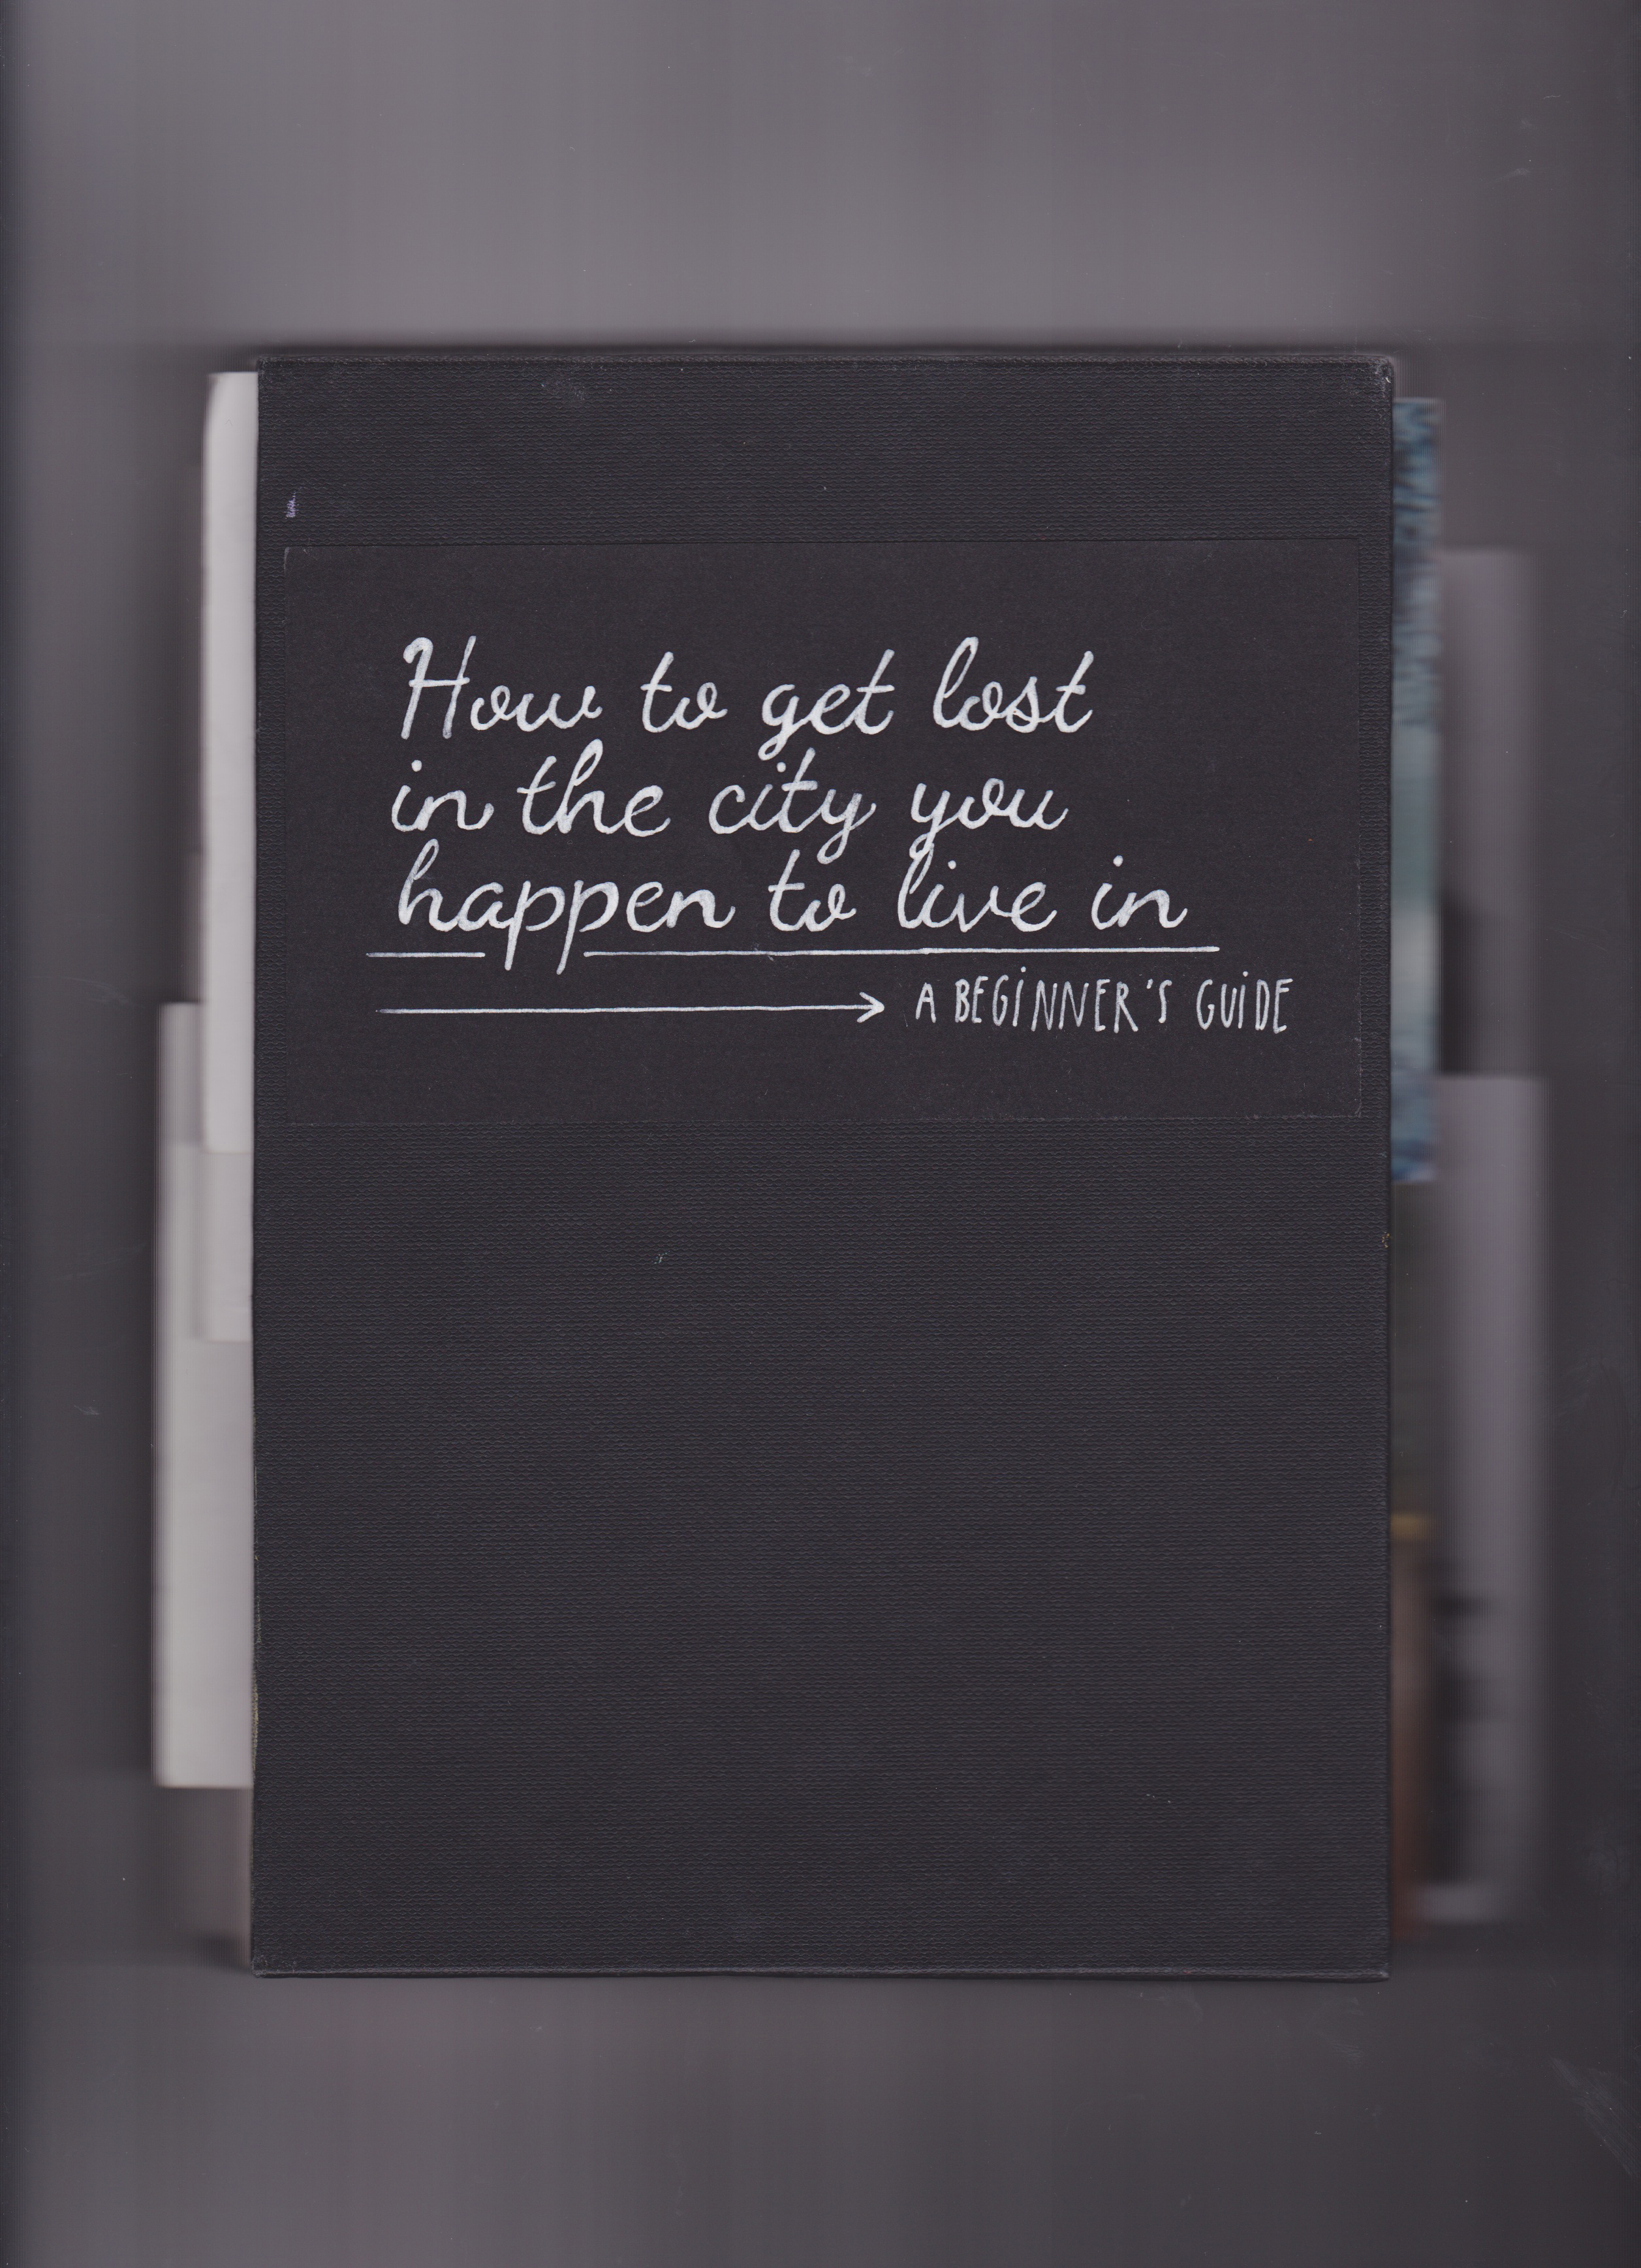 How to get lost
in the city you
happen to live in
A BEGINNER'S GUIDE